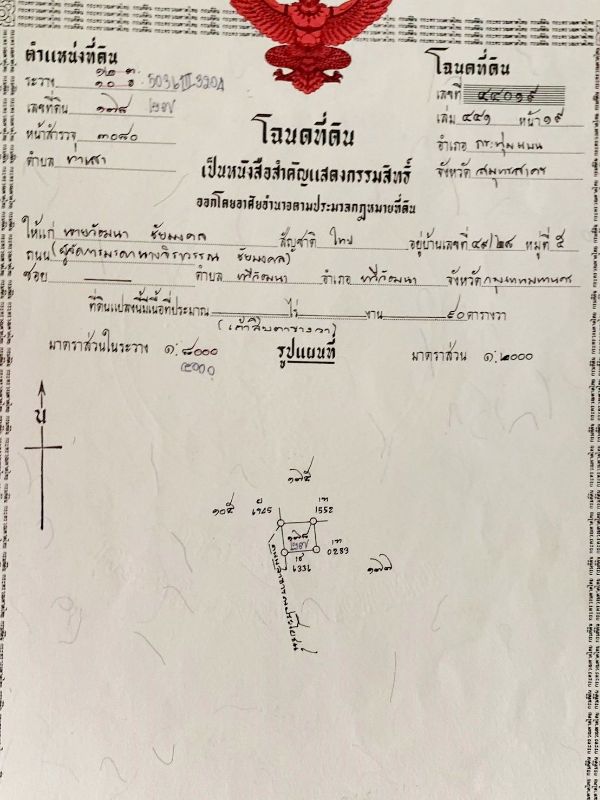 ตำแหน่งที่ดิน
ระวาง ๑๒ ต ๑๐ อ 5036 III 3204
เลขที่ดิน ๑๗๘ ๒๒๗
หน้าสำรวจ ๓๐๘๐
ตำบล ท่าเสา
โฉนดที่ดิน
เลขที่ ๔๔๐๑๙
เล่ม ๔๔๑ หน้า ๑๙
อำเภอ กระทุ่มแบน
จังหวัด สมุทรสาคร
โฉนดที่ดิน
เป็นหนังสือสำคัญแสดงกรรมสิทธิ์
ออกโดยอาศัยอำนาจตามประมวลกฎหมายที่ดิน
ให้แก่ นายวัฒนา ชัยมงคล สัญชาติ ไทย อยู่บ้านเลขที่ ๔๙/๒๘ หมู่ที่ ๕
ถนน (ผู้จัดการมรดกนางจิราวรรณ ชัยมงคล)
ซอย ตำบล ทวีวัฒนา อำเภอ ทวีวัฒนา จังหวัด กรุงเทพมหานคร
ที่ดินแปลงนี้มีเนื้อที่ประมาณ ไร่ งาน ๙๐ ตารางวา
(เก้าสิบตารางวา)
มาตราส่วนในระวาง ๑:๘๐๐๐ รูปแผนที่ มาตราส่วน ๑:๒๐๐๐
๔๐๐๐
น
๑๗๕
๑๐๕
1552
๑๗๘
0283
๑๗๗
ถนนสาธารณประโยชน์